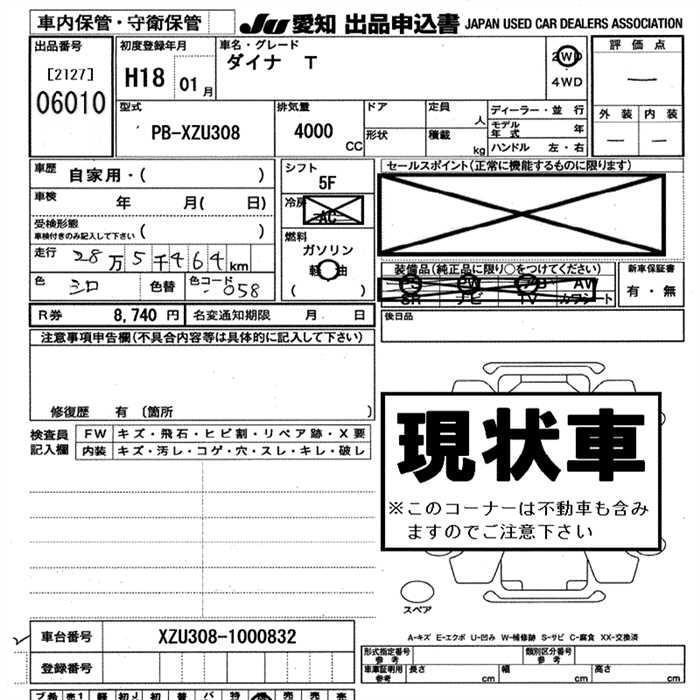 車内保管・守衛保管 JU 愛知 出品申込書 JAPAN USED CAR DEALERS ASSOCIATION
出品番号 初度登録年月 車名・グレード 評価点
[2127] H18 01月 ダイナ T 2WD —
06010 4WD
型式 排気量 ドア 定員 人 ディーラー・並行 外装 内装
PB-XZU308 4000 CC 形状 積載 kg モデル年式 年 — —
ハンドル 左・右
車歴 自家用・( ) シフト 5F セールスポイント(正常に機能するものに限ります)
車検 年 月( 日) 冷房 AC
受検形態 車検付きのみ記入して下さい ( ) 燃料 ガソリン
走行 28万5千464km 軽油 装備品(純正品に限り○をつけてください) 新車保証書
色 シロ 色替 色コード 058 ( ) PS PW AB AW 有・無
SR ナビ TV カワシート
R券 8,740円 名変通知期限 月 日 後日品
注意事項申告欄(不具合内容等は具体的に記入して下さい)
修復歴 有〔箇所 〕
現状車
※このコーナーは不動車も含み
ますのでご注意下さい
検査員 FW キズ・飛石・ヒビ割・リペア跡・X要
記入欄 内装 キズ・汚レ・コゲ・穴・スレ・キレ・破レ
スペア
A-キズ E-エクボ U-凹み W-補修跡 S-サビ C-腐食 XX-交換済
車台番号 XZU308-1000832
登録番号
形式指定番号 参考 類別区分番号 参考
車庫証明用 参考 長さ cm 幅 cm 高さ cm